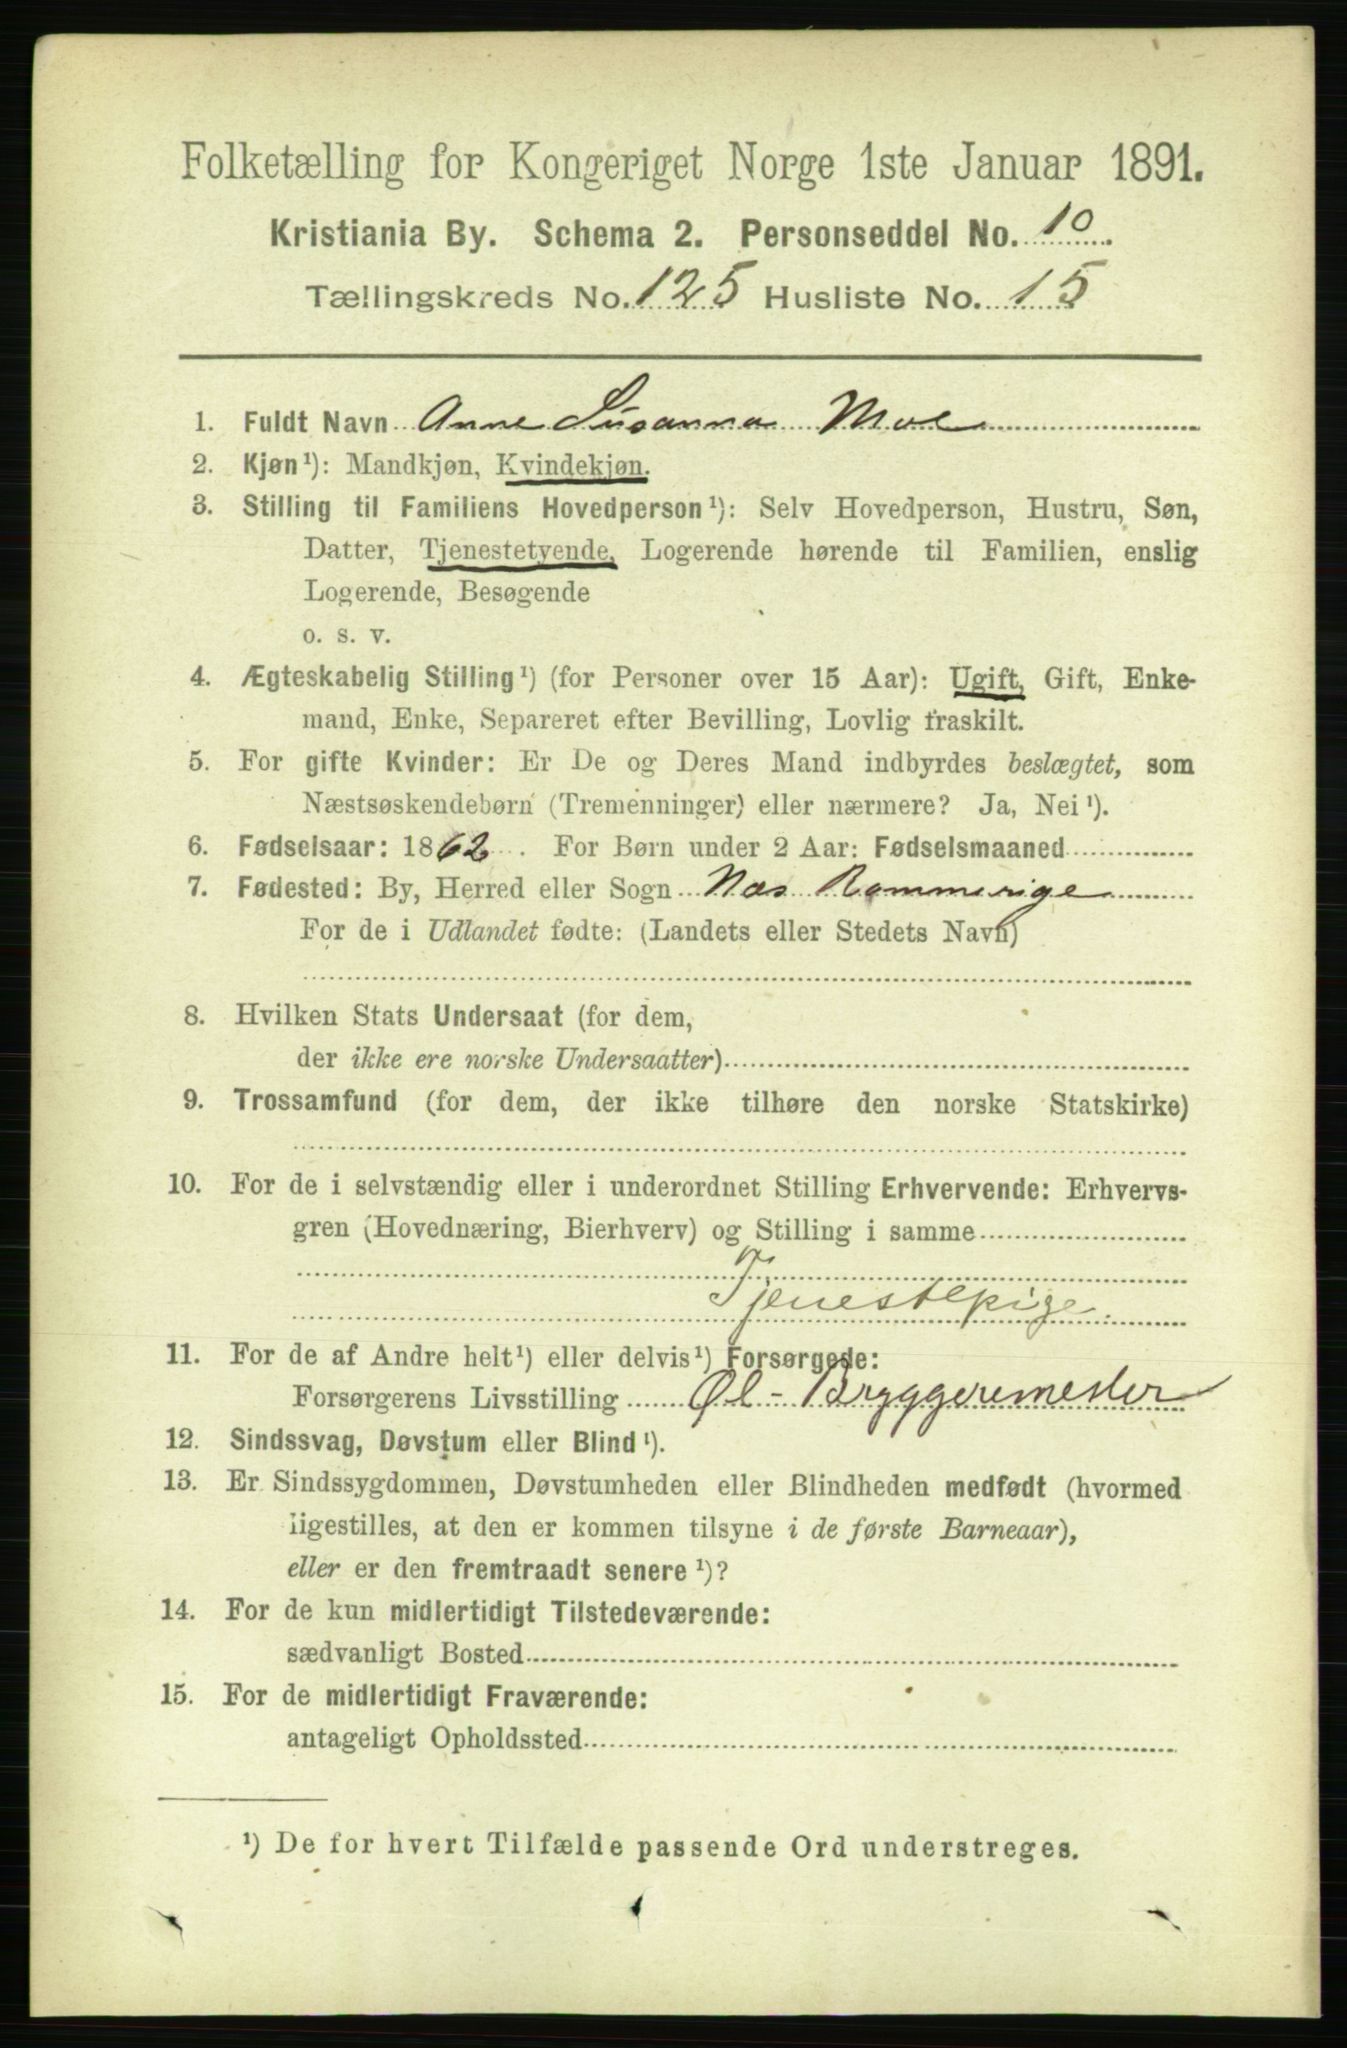 Folketælling for Kongeriget Norge 1ste Januar 1891.
Kristiania By. Schema 2. Personseddel No. 10
Tællingskreds No. 125 Husliste No. 15
1. Fuldt Navn Anne Susanna Moe
2. Kjøn¹): Mandkjøn, Kvindekjøn.
3. Stilling til Familiens Hovedperson¹): Selv Hovedperson, Hustru, Søn,
Datter, Tjenestetyende, Logerende hørende til Familien, enslig
Logerende, Besøgende
o. s. v.
4. Ægteskabelig Stilling¹) (for Personer over 15 Aar): Ugift, Gift, Enke-
mand, Enke, Separeret efter Bevilling, Lovlig fraskilt.
5. For gifte Kvinder: Er De og Deres Mand indbyrdes beslægtet, som
Næstsøskendebørn (Tremenninger) eller nærmere? Ja, Nei¹).
6. Fødselsaar: 1862. For Børn under 2 Aar: Fødselsmaaned
7. Fødested: By, Herred eller Sogn Næs Rommerige
For de i Udlandet fødte: (Landets eller Stedets Navn)
8. Hvilken Stats Undersaat (for dem,
der ikke ere norske Undersaatter)
9. Trossamfund (for dem, der ikke tilhøre den norske Statskirke)
10. For de i selvstændig eller i underordnet Stilling Erhvervende: Erhvervs-
gren (Hovednæring, Bierhverv) og Stilling i samme
Tjenestepige.
11. For de af Andre helt¹) eller delvis¹) Forsørgede:
Forsørgerens Livsstilling Øl-Bryggeremester
12. Sindssvag, Døvstum eller Blind¹).
13. Er Sindssygdommen, Døvstumheden eller Blindheden medfødt (hvormed
ligestilles, at den er kommen tilsyne i de første Barneaar),
eller er den fremtraadt senere¹)?
14. For de kun midlertidigt Tilstedeværende:
sædvanligt Bosted
15. For de midlertidigt Fraværende:
antageligt Opholdssted
¹) De for hvert Tilfælde passende Ord understreges.